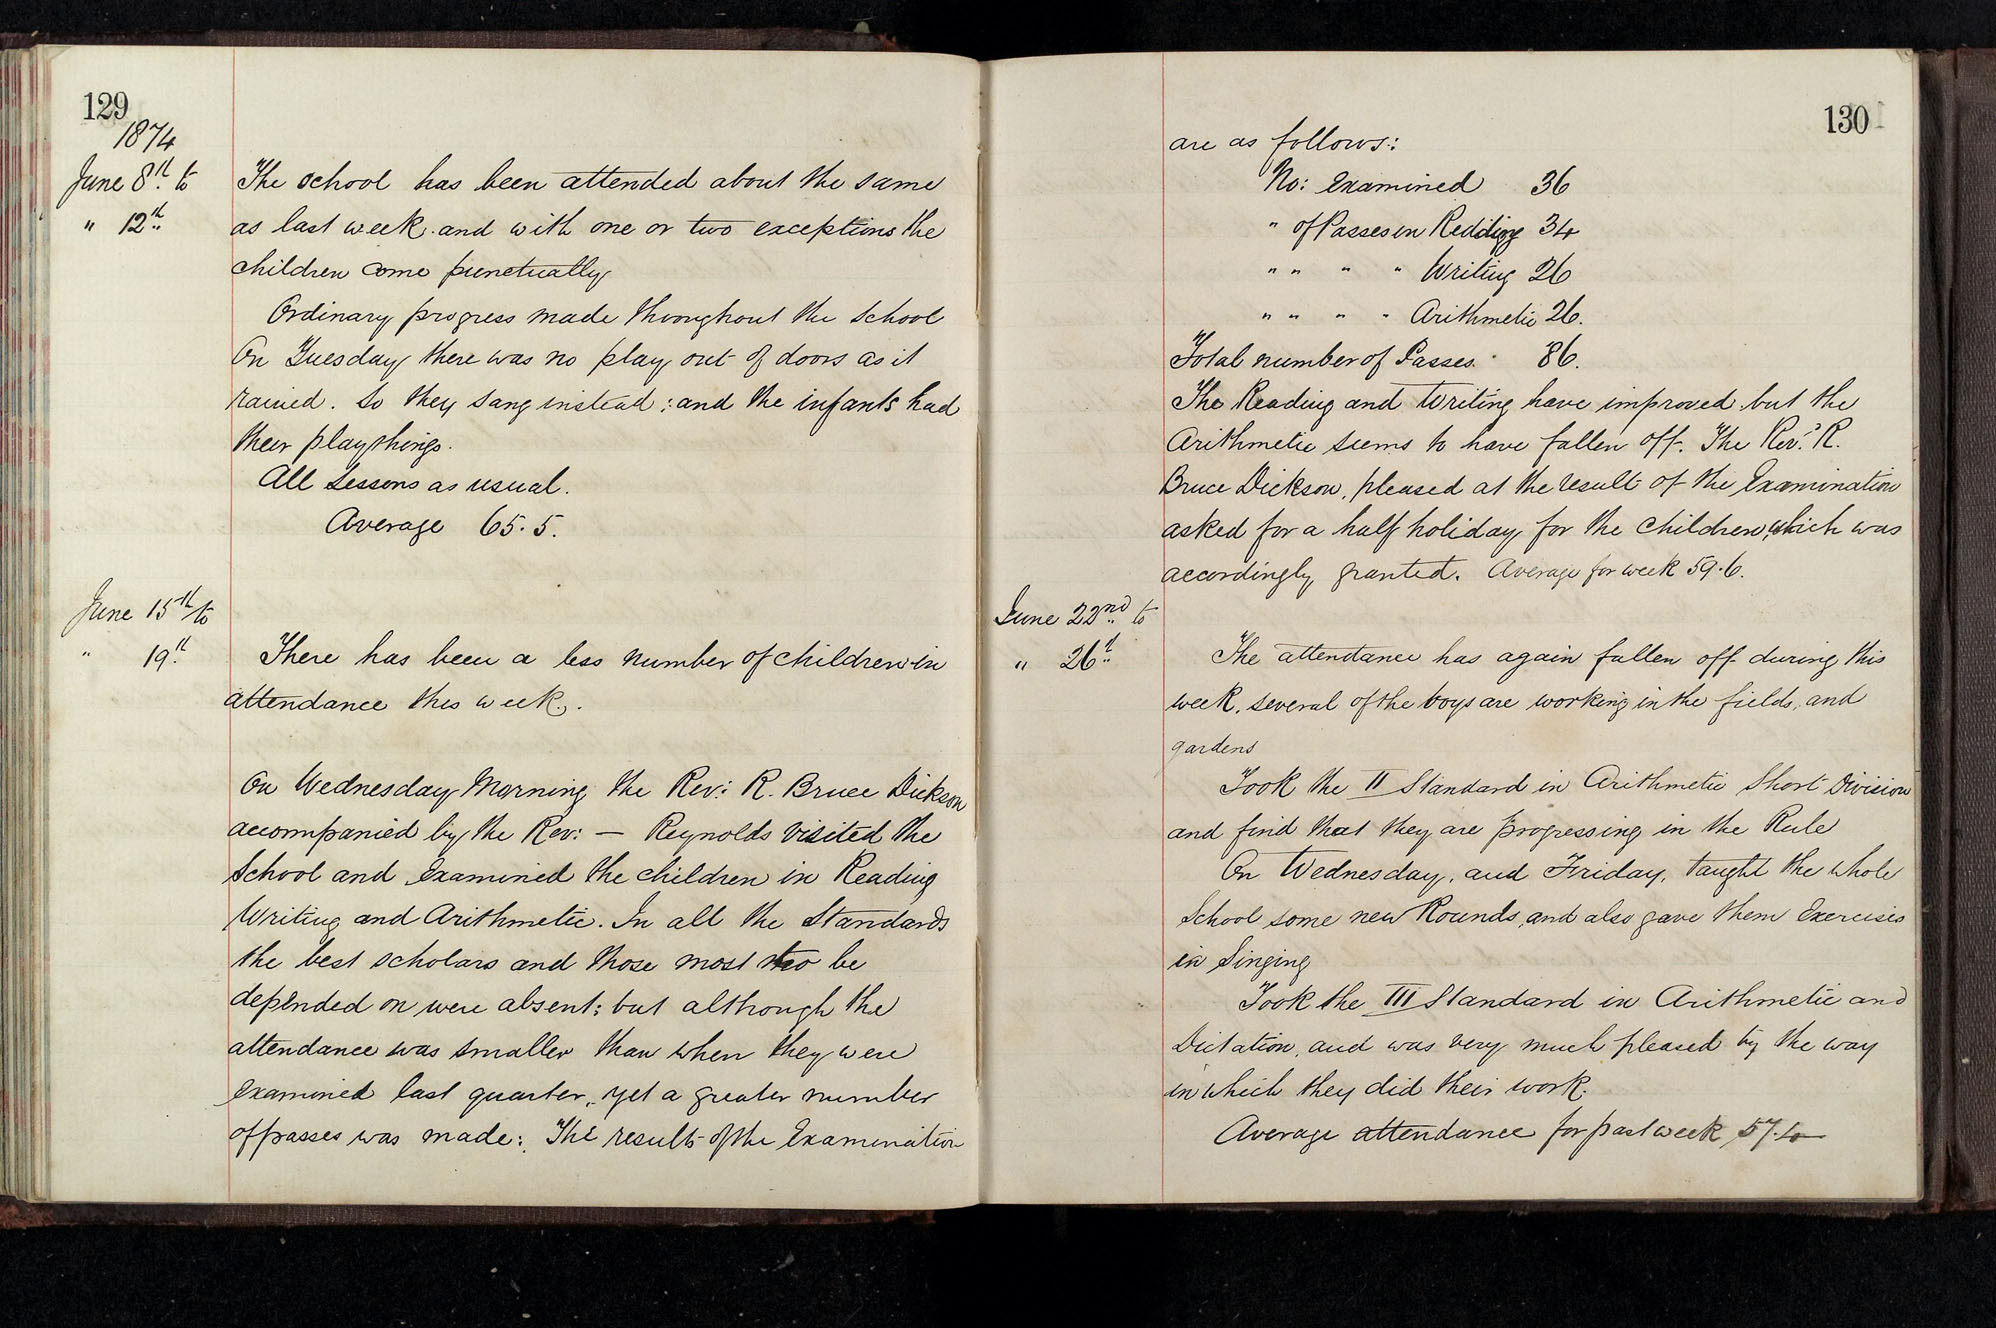 129
1874
June 8th to
The school has been attended about the same
" 12th
as last week and with one or two exceptions the
children come punctually
Ordinary progress made throughout the School
On Tuesday there was no play out of doors as it
rained. So they sang instead; and the infants had
their playthings.
All Lessons as usual.
Average 65.5.
June 15th to
" 19th
There has been a less number of children in
attendance this week.
On Wednesday Morning the Rev: R. Bruce Dickson
accompanied by the Rev: — Reynolds visited the
School and Examined the children in Reading
Writing and Arithmetic. In all the Standards
the best scholars and those most to be
depended on were absent; but although the
attendance was smaller than when they were
Examined last quarter, yet a greater number
of passes was made: The results of the Examination
130
are as follows:
No: Examined 36
" of Passes in Redding 34
" " " " Writing 26
" " " " Arithmetic 26.
Total number of Passes. 86.
The Reading and Writing have improved but the
Arithmetic seems to have fallen off. The Rev: R.
Bruce Dickson, pleased at the result of the Examination
asked for a half holiday for the children, which was
accordingly granted. Average for week 59.6.
June 22nd to
" 26th
The attendance has again fallen off during this
week, several of the boys are working in the fields, and
gardens
Took the II Standard in Arithmetic Short Division
and find that they are progressing in the Rule
On Wednesday, and Friday, taught the whole
School some new Rounds, and also gave them Exercises
in Singing
Took the III Standard in Arithmetic and
Dictation, and was very much pleased by the way
in which they did their work.
Average attendance for past week